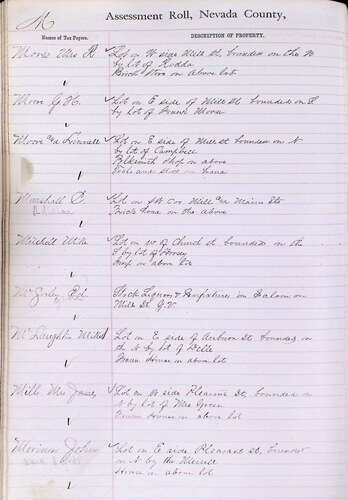 M
Assessment Roll, Nevada County,
Names of Tax Payers.
DESCRIPTION OF PROPERTY.
Moore Mrs R
Lot on W side Mill St, bounded on the N
by lot of Rodda
Brick Store on Above lot
Moore G H.
Lot on E side of Mill St bounded on S
by lot of Moore
Moore &
Lot on E side of Mill St bounded on N
by lot of Campbell
Blksmith Shop on above
Marshall C.
Lot on SW Cor Mill & Main Sts
Brick house on the above
Mitchell
Lot on W of Church St bounded on the
S by lot of
on above lot
Ed
Stock Liquors & Furniture in Saloon on
Mill St G.V.
McLaughlin
Lot on E side of Auburn St bounded on
the N by lot of
House on above lot
Mills Mrs
Lot on W side Pleasant St, bounded on
N by lot of Mrs Green
House on above lot
John
Lot on E side Pleasant St, bounded
on N by
House on above lot